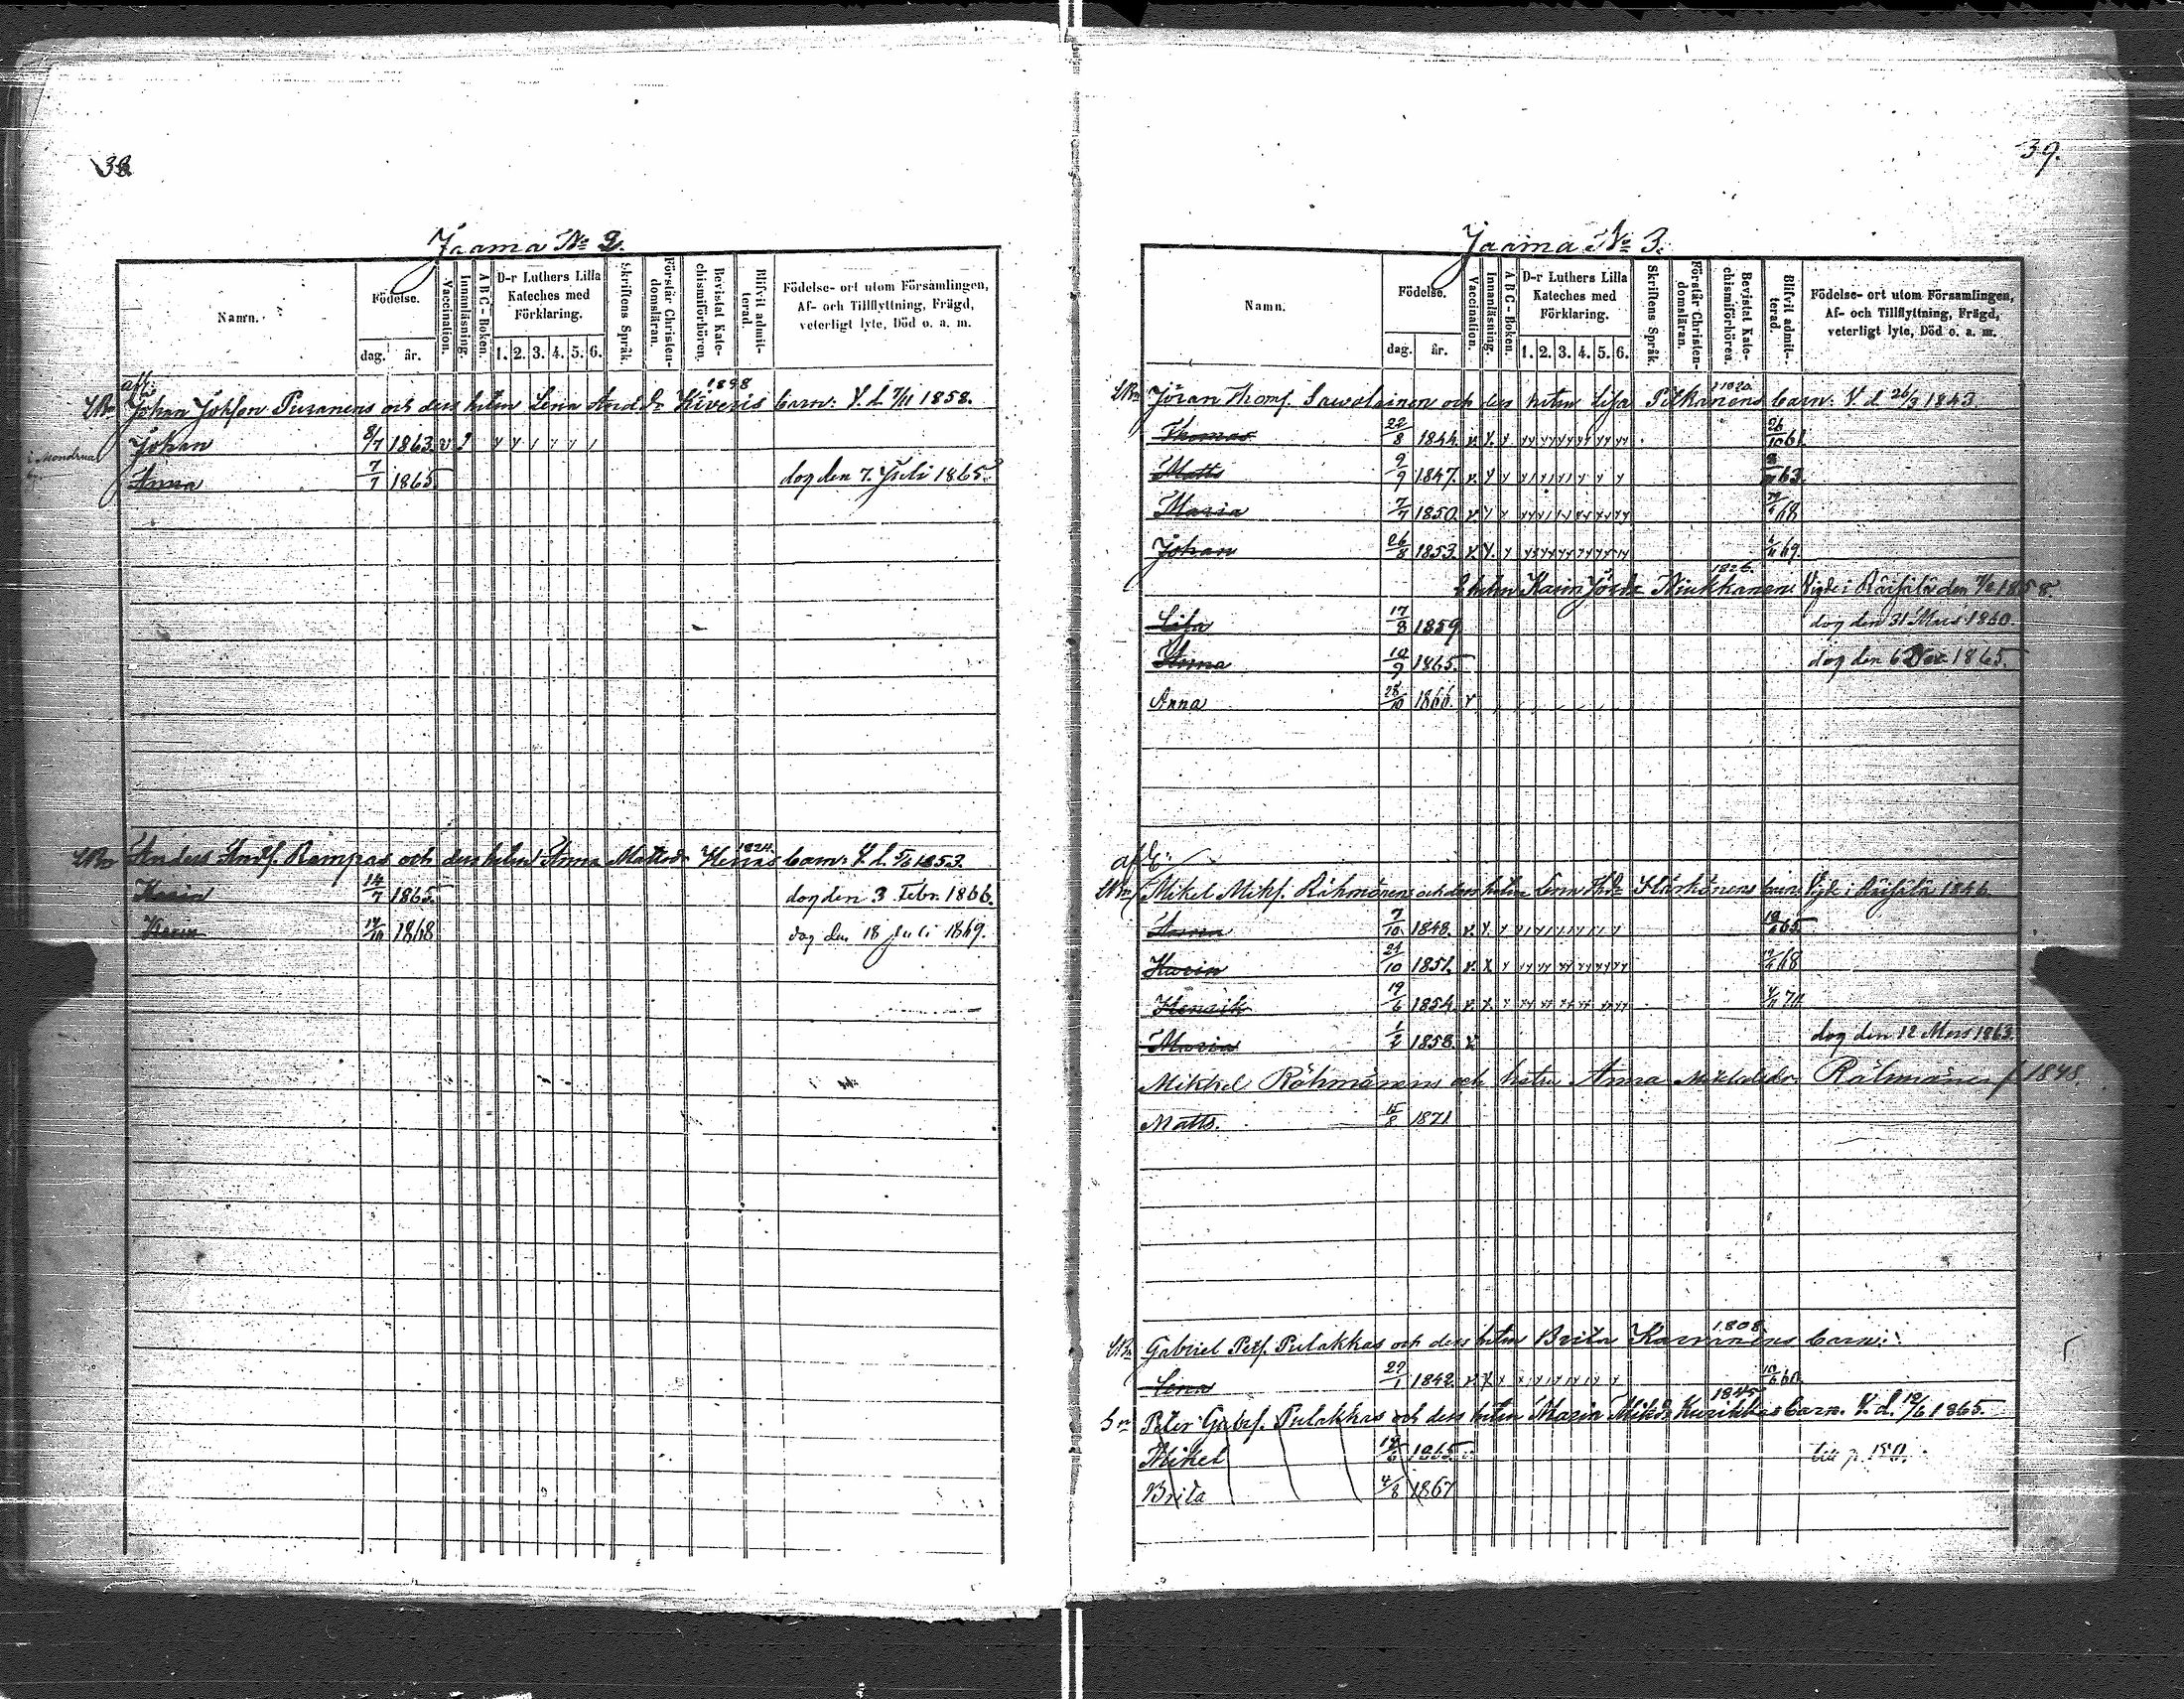 38
Jaama № 2.
Namn.
Födelse.
dag. år.
Vaccination.
Innanläsning.
A B C - Boken.
D-r Luthers Lilla
Kateches med
Förklaring.
1. 2. 3. 4. 5. 6.
Skriftens Språk.
Förstår Christen-
domsläran.
Bevistat Kate-
chismiförhören.
Blifvit admit-
terad.
Födelse- ort utom Församlingen,
Af- och Tillflyttning, Frägd,
veterligt lyte, Död o. a. m.
Johan Johsson Puranens och dess hustru Lena And.dr Kiveris barn: V. d. 7/11 1858.
1828
Johan 8/7 1863. v
Anna 7/7 1865 dog den 7. Juli 1865.
1824.
Anders Andf. Rampas och dess hustru Anna Mattsdr barn: V. d. 1853.
Karin 14/7 1865. dog den 3 Febr. 1866.
Karin 1868 dog den 18 Juli 1869.
39.
Jaama № 3.
Namn.
Födelse.
dag. år.
Vaccination.
Innanläsning.
A B C - Boken.
D-r Luthers Lilla
Kateches med
Förklaring.
1. 2. 3. 4. 5. 6.
Skriftens Språk.
Förstår Christen-
domsläran.
Bevistat Kate-
chismiförhören.
Blifvit admit-
terad.
Födelse- ort utom Församlingen,
Af- och Tillflyttning, Frägd,
veterligt lyte, Död o. a. m.
Jöran Thomf. Sawolainen och dess hustru Lisa Pitkänens barn: V. d. 26/3 1843
Thomas 22/8 1844. 26/10 61.
Matts 9/9 1847. 63.
Maria 7/7 1850. 68
Johan 26/8 1853. 69.
1826.
2 hustru Karin Jör.dr Niukkanen. Vigde i Räisälä den 1858.
Lisa 17/8 1859 dog den 31 Mars 1860.
Anna 10/9 1865. dog den 6 Dec 1865.
Anna 28/10 1866. v
Mikel Mikf. Rähmönens och dess hustru Lena barn. Vigde i Räisälä 1846.
Anna 7/10 1848. 65.
Karin 21/10 1851. 68
Henrik 19/6 1854. 70.
Maria 1/2 1858. v. dog den 12 Mars 1863.
Mikkel Rähmönens och hustru Anna Mikkelsdr. Rähmönen f 1848.
Matts. 15/8 1871.
1808
Gabriel Petf. Pulakkas och dess hustru Brita barn:
Lena 29/1 1842 60.
1845
Peter Gabrf. Pulakkas och dess hustru Maria Mik.dr Kurikkas barn. V. d. 12/6 1865.
Mikel 1865.
Brita 4/8 1867